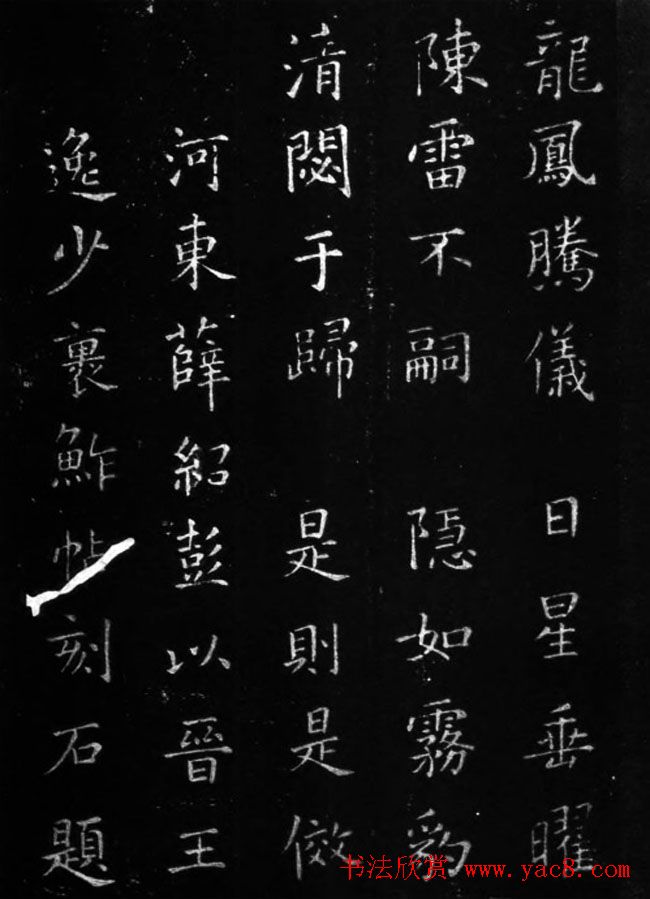 龍鳳騰儀 日星垂曜
陳雷不嗣 隐如霧豹
清閟于歸 是則是傚
河東薛紹彭以晉王
逸少裹鮓帖刻石題
书法欣赏 www.yac8.com